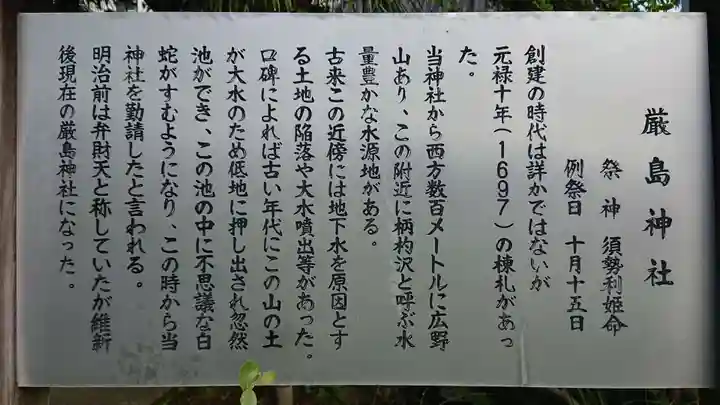 厳島神社
祭神 須勢利姫命
例祭日 十月十五日
創建の時代は詳かではないが
元禄十年(1697)の棟札があっ
た。
当神社から西方数百メートルに広野
山あり、この附近に柄杓沢と呼ぶ水
量豊かな水源地がある。
古来この近傍には地下水を原因とす
る土地の陥落や大水噴出等があった。
口碑によれば古い年代にこの山の土
が大水のため低地に押し出され忽然
池ができ、この池の中に不思議な白
蛇がすむようになり、この時から当
神社を勤請したと言われる。
明治前は弁財天と称していたが維新
後現在の厳島神社になった。